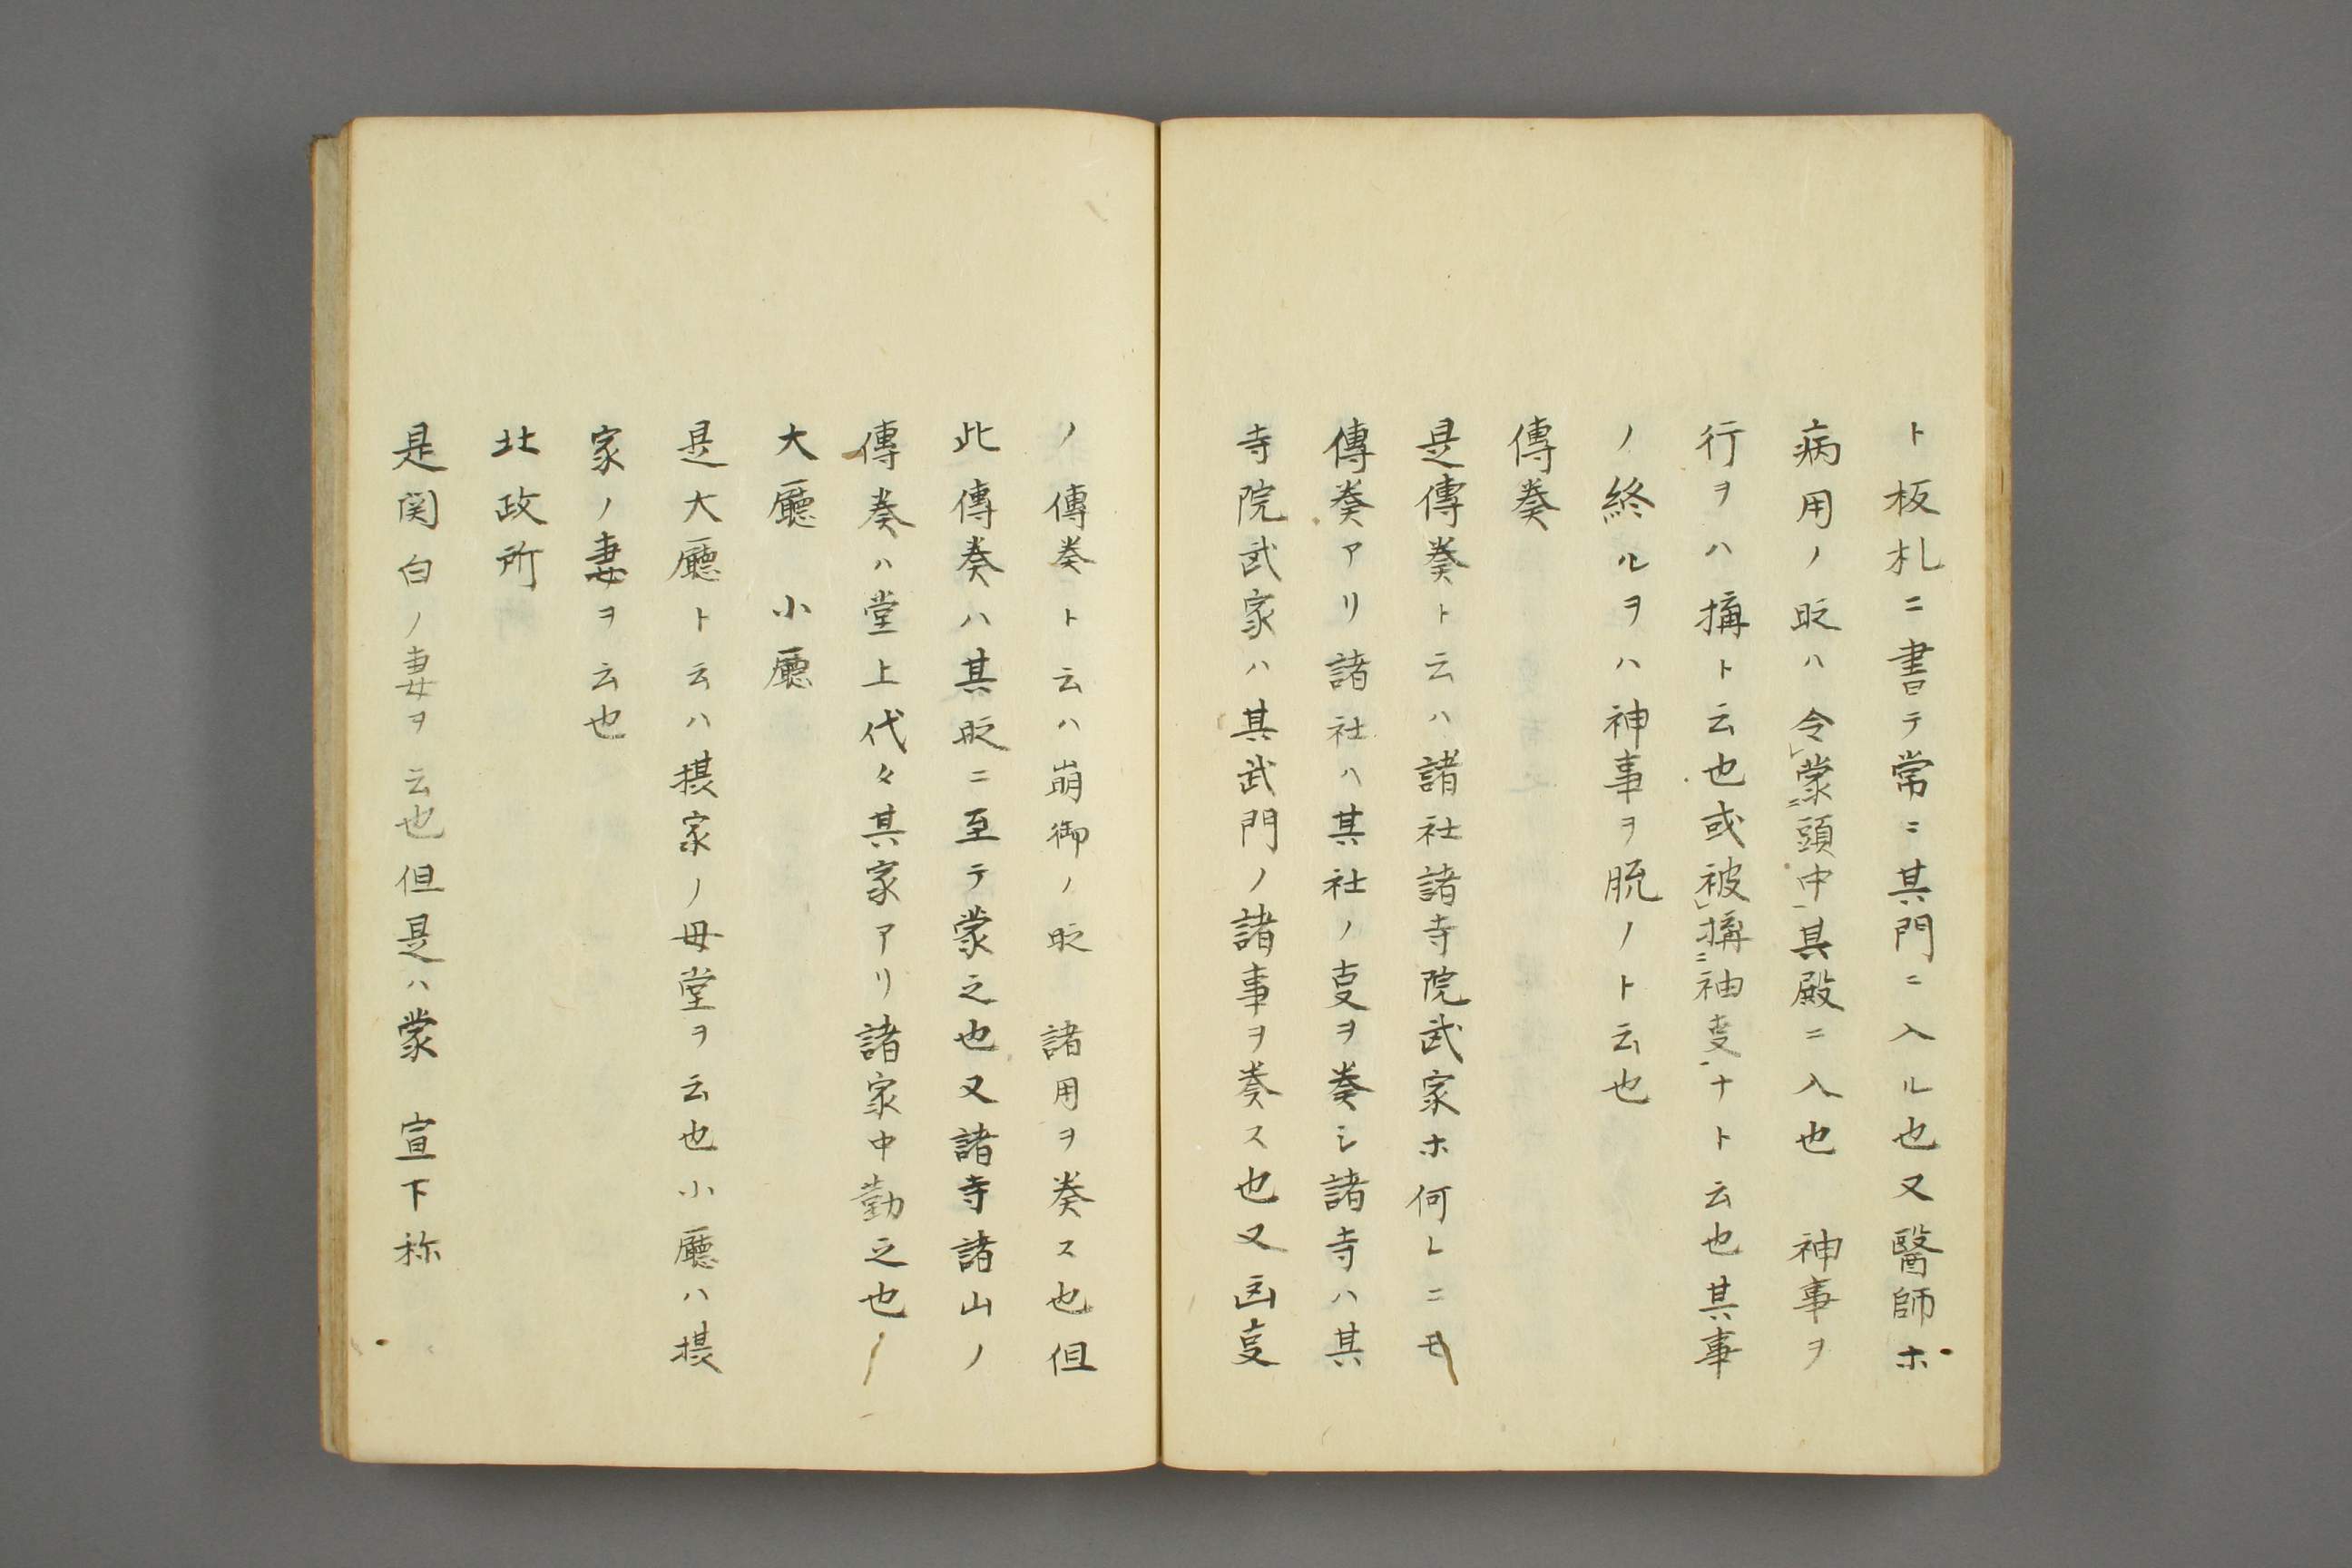 ト板札ニ書テ常ニ其門ニ入ル也又醫師ホ
病用ノ眂ハ令レ蒙ニ頭中一具殿ニ入也　神事ヲ
行ヲハ搆ト云也或被レ搆ニ袖叓一ナト云也其事
ノ終ルヲハ神事ヲ脱ノト云也
傳奏
是傳奏ト云ハ諸社諸寺院武家ホ何レニモ
傳奏アリ諸社ハ其社ノ叓ヲ奏シ諸寺ハ其
寺院武家ハ其武門ノ諸事ヲ奏ス也又凶叓
ノ傳奏ト云ハ崩御ノ眂　諸用ヲ奏ス也但
此傳奏ハ其眂ニ至テ蒙之也又諸寺諸山ノ
傳奏ハ堂上代々其家アリ諸家中勤之也
大廳　小廳
是大廳ト云ハ摂家ノ母堂ヲ云也小廳ハ摂
家ノ妻ヲ云也
北政所
是関白ノ妻ヲ云也但是ハ蒙　宣下称